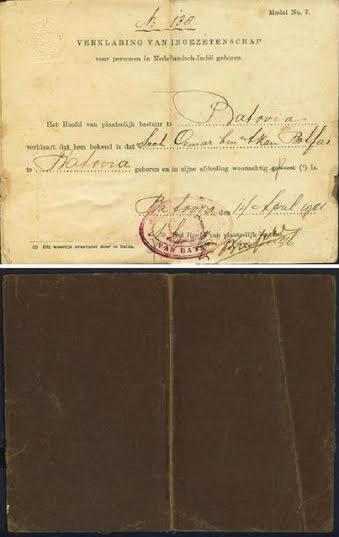 No 138
Model No. 7.
VERKLARING VAN INGEZETENSCHAP
voor personen in Nederlandsch-Indië geboren.
Het Hoofd van plaatselijk bestuur te Batavia
verklaart dat hem bekend is dat Oemar bin
te Batavia geboren en in zijne afdeeling woonachtig geweest (1) is.
Batavia, den 14 April
Het Hoofd van plaatselijk bestuur
(1) Dit woordje eventueel door te halen.